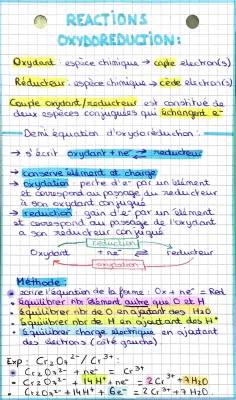 REACTIONS
OXYDOREDUCTION:
Oxydant: espèce chimique → capte électron(s)
Réducteur: espèce chimique → cède électron(s)
Couple oxydant/reducteur est constitué de
deux espèces conjuguées qui échangent e⁻
Demi équation d'oxydoréduction:
→ s'écrit oxydant + ne⁻ ⇌ reducteur
→ conserve élément et charge
→ oxydation perte d'e⁻ par un élément
et correspond au passage du reducteur
à son oxydant conjugué
→ reduction gain d'e⁻ par un élément
et correspond au passage de l'oxydant
a son reducteur conjugué
reduction
Oxydant + ne⁻ ⇌ reducteur
oxydation
Méthode:
écrire l'équation de la forme: Ox + ne⁻ = Red
équilibrer nbr élément autre que O et H
équilibrer nbr de O en ajoutant des H₂O
équilibrer nbr de H en ajoutant des H⁺
équilibrer charge électrique en ajoutant
des électrons (côté gauche)
Exp: Cr₂O₇²⁻/Cr³⁺:
Cr₂O₇²⁻ + ne⁻ = Cr³⁺
Cr₂O₇²⁻ + 14H⁺ + ne⁻ = 2Cr³⁺ + 7H₂O
Cr₂O₇²⁻ + 14H⁺ + 6e⁻ = 2Cr³⁺ + 7H₂O